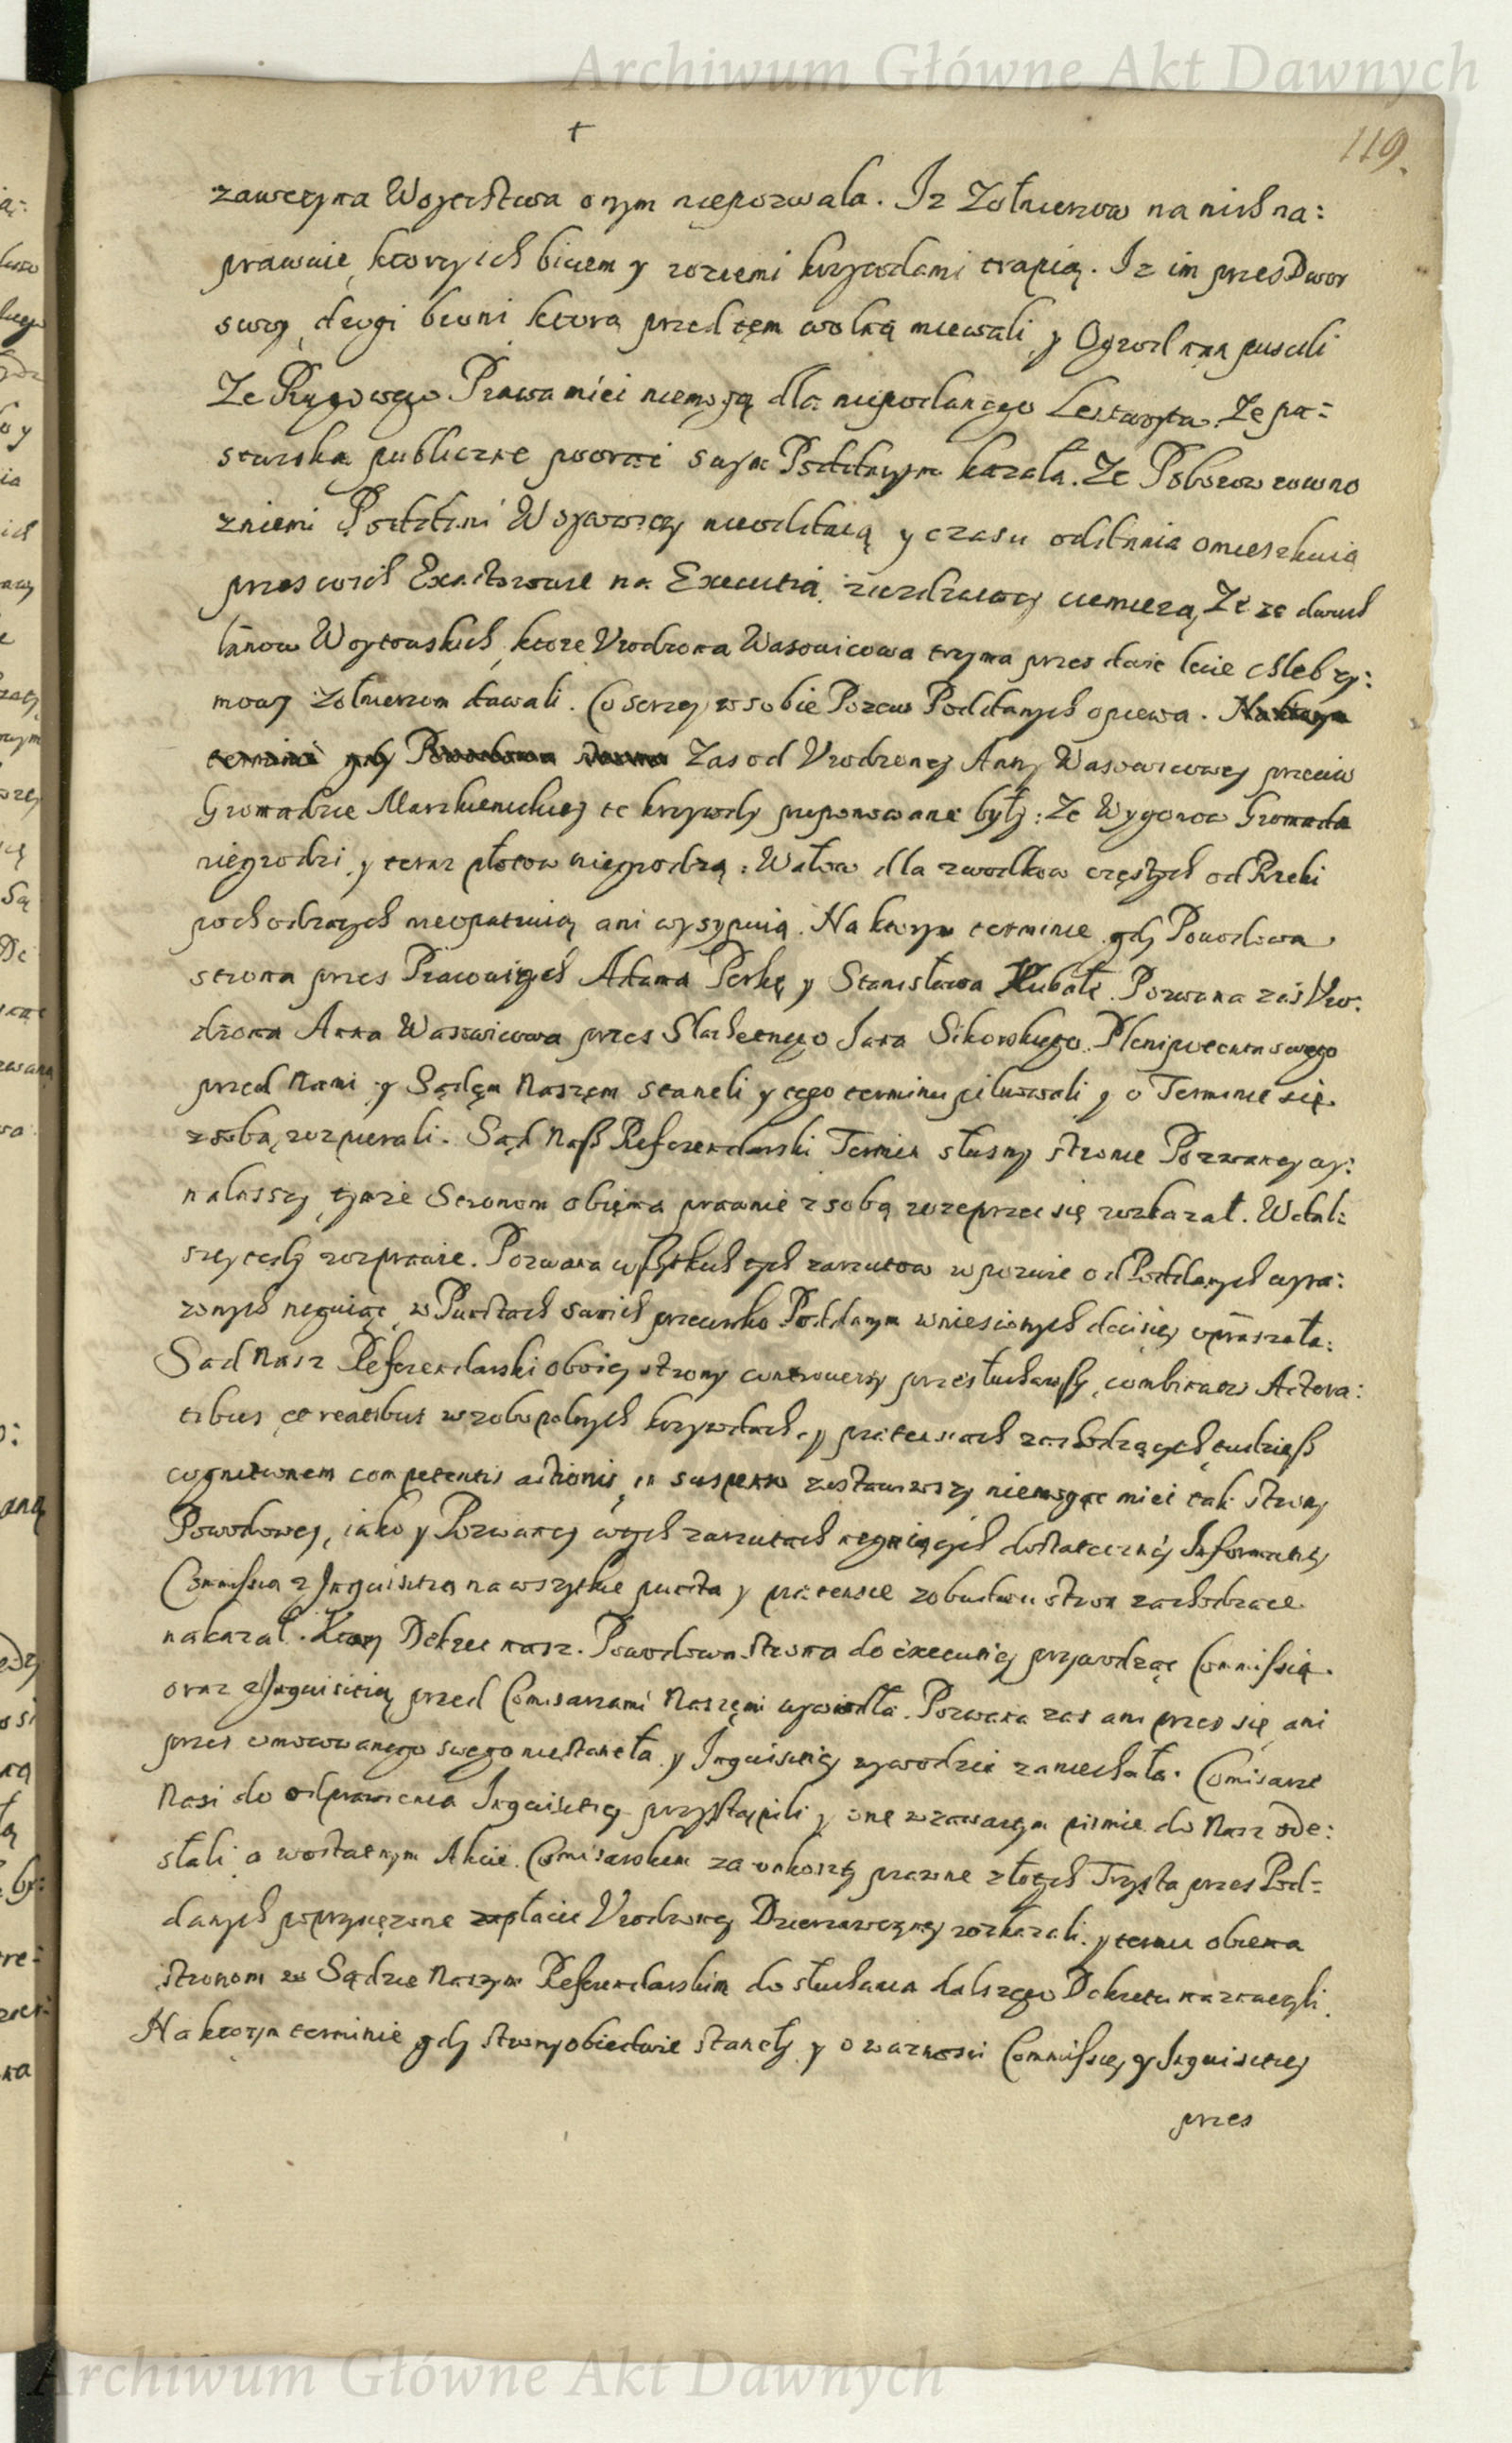 Archiwum Główne Akt Dawnych
†
119.
zawczyna Woyectwa onym niepozwala. Iz Zołnierzow na nich na:
prawuie, ktorzy ich biciem y roznemi krzywdami trapią. Iz im przes Dwor
swoy, drogi broni ktorą przed tęm wolną miewali y Ogrod
Ze Prawa miec niemogą dla niepodanego. Ze pa:
stwiska publiczne poorac swym Poddanym kazała. Ze Poborow rowno
zniemi Poddani Woytowscy nieoddaią y czasu oddania omieszkuią
przes co ich Exactorowie na Executią ziezdzaiący ciemiezą, Ze ze dwuch
łanow Woytowskich, ktore Vrodzona Wasowicowa trzyma przes dwie lecie chleb zy:
mowy zołnierzom dawali. Co szerzey w sobie Pozew Poddanych opiewa. Na ktorym
terminie gdy Powodowa strona Zas od Vrodzoney Anny Wasowicowey przeciw
Gromadzie te krzywdy proponowane były: Ze Wygonow Gromada
niegrodzi, y teraz płotow niegrodzą. Wałow dla zwodkow częstych od Rzeki
pochodzących nieopatruią, ani wysypuią. Na ktorym terminie gdy Powodowa
strona przes Pracowitych Adama Perkę y Stanisława Kubałę. Pozwana zaś Vro:
dzona Anna Wasowicowa przes Slachetnego Jana Sikorskiego Plenipotenta swego
przed Nami y Sądęm Naszęm staneli y tego terminu pilnowali y o Terminie się
z sobą rozpierali. Sąd Nasz Referendarski Termin słusny stronie Pozwaney wy:
nalasszy, tymże Stronom obięma prawnie z sobą rozeprzec się rozkazał. W dal:
szey tedy rozprawie. Pozwana wszytkich tych zarzutow w pozwie od Poddanych wyra:
zonych neguiąc, w Punktach swoich przeciwko Poddanym wniesionych decisiey upraszała:
Sad Nasz Referendarski oboiey strony controuersy przesłuchawszy, combinatis Actora:
tibus et reatibus w zobopolnych krzywdach, y pretensiach zachodzących, tudziesz
cognitionem competentis actionis, in suspenso zostawiwszy niemogąc miec tak strony
Powodowey, iako y Pozwaney w tych zarzutach neguiących dostateczney Informatiey
Commissią z Inquisitią na wszytkie puncta y pretensie z obudwu stron zachodzące
nakazał. Ktory Dekret nasz. Powodowa strona do executiey przywodząc Commissią
oraz z Inquisitią przed Comisarzami Naszęmi wywiodła. Pozwana zas ani przes się, ani
przes umocowanego swego niestaneła y Inquisitiey wywodzic zaniechała. Comisarze
Nasi do odprawienia Inquisitiey przystąpili y one w zawartym pismie do Nasz ode:
słali a w ostatnym Akcie Comisarskim za onkoszty prawne złotych Trzysta przes Pod=
danych poprzysięzone zapłacic Vrodzoney Dzierzawczyney rozkazali. y termin obiema
stronom w Sądzie Naszym Referendarskim do słuchania dalszego Dekretu naznaczyli.
Na ktorym terminie gdy strony obiedwie staneły y o waznosci Commissiey y Inquisitiey
przes
Archiwum Główne Akt Dawnych